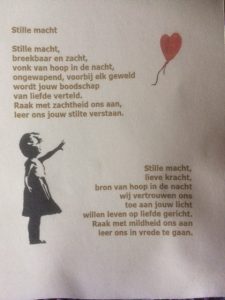 Stille macht
Stille macht,
breekbaar en zacht,
vonk van hoop in de nacht,
ongewapend, voorbij elk geweld
wordt jouw boodschap
van liefde verteld.
Raak met zachtheid ons aan,
leer ons jouw stilte verstaan.
Stille macht,
lieve kracht,
bron van hoop in de nacht
wij vertrouwen ons
toe aan jouw licht
willen leven op liefde gericht.
Raak met mildheid ons aan
leer ons in vrede te gaan.